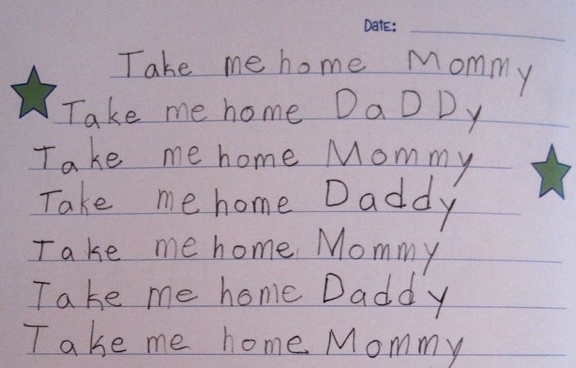 DATE:
Take me home Mommy
Take me home DaDDy
Take me home Mommy
Take me home Daddy
Take me home Mommy
Take me home Daddy
Take me home Mommy